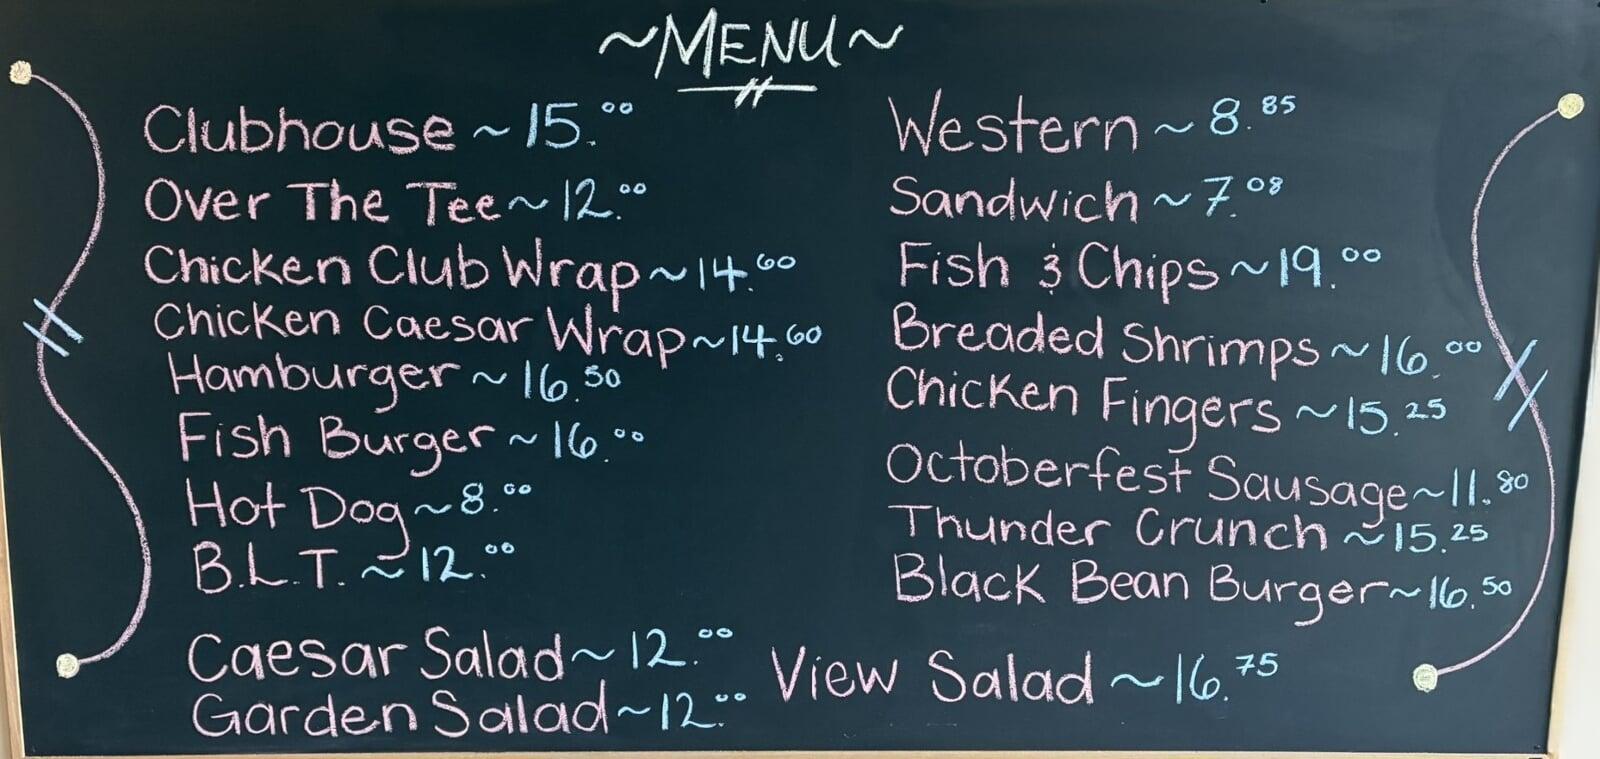 ~MENU~
Clubhouse ~ 15.00
Over The Tee ~ 12.00
Chicken Club Wrap ~ 14.60
Chicken Caesar Wrap ~ 14.60
Hamburger ~ 16.50
Fish Burger ~ 16.00
Hot Dog ~ 8.00
B.L.T. ~ 12.00
Caesar Salad ~ 12.00
Garden Salad ~ 12.00
Western ~ 8.85
Sandwich ~ 7.08
Fish & Chips ~ 19.00
Breaded Shrimps ~ 16.00
Chicken Fingers ~ 15.25
Octoberfest Sausage ~ 11.80
Thunder Crunch ~ 15.25
Black Bean Burger ~ 16.50
View Salad ~ 16.75